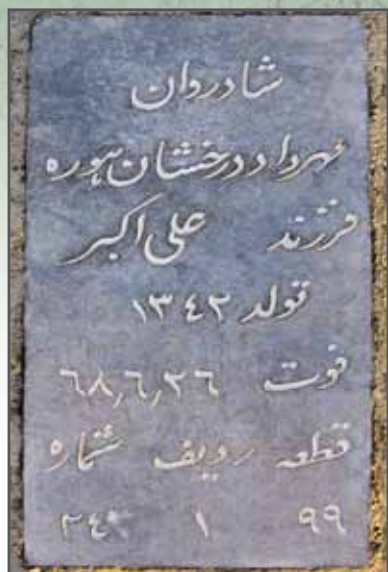 شادروان
مهرداد درخشان هوره
فرزند علی اکبر
تولد ۱۳۴۲
فوت ۶۸٫۶٫۲۶
قطعه ردیف شماره
۹۹ ۱